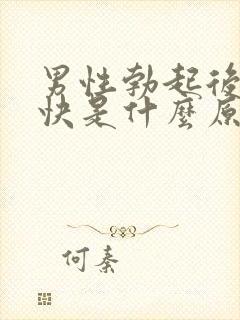 男性勃起後
快是什麼原
何秦